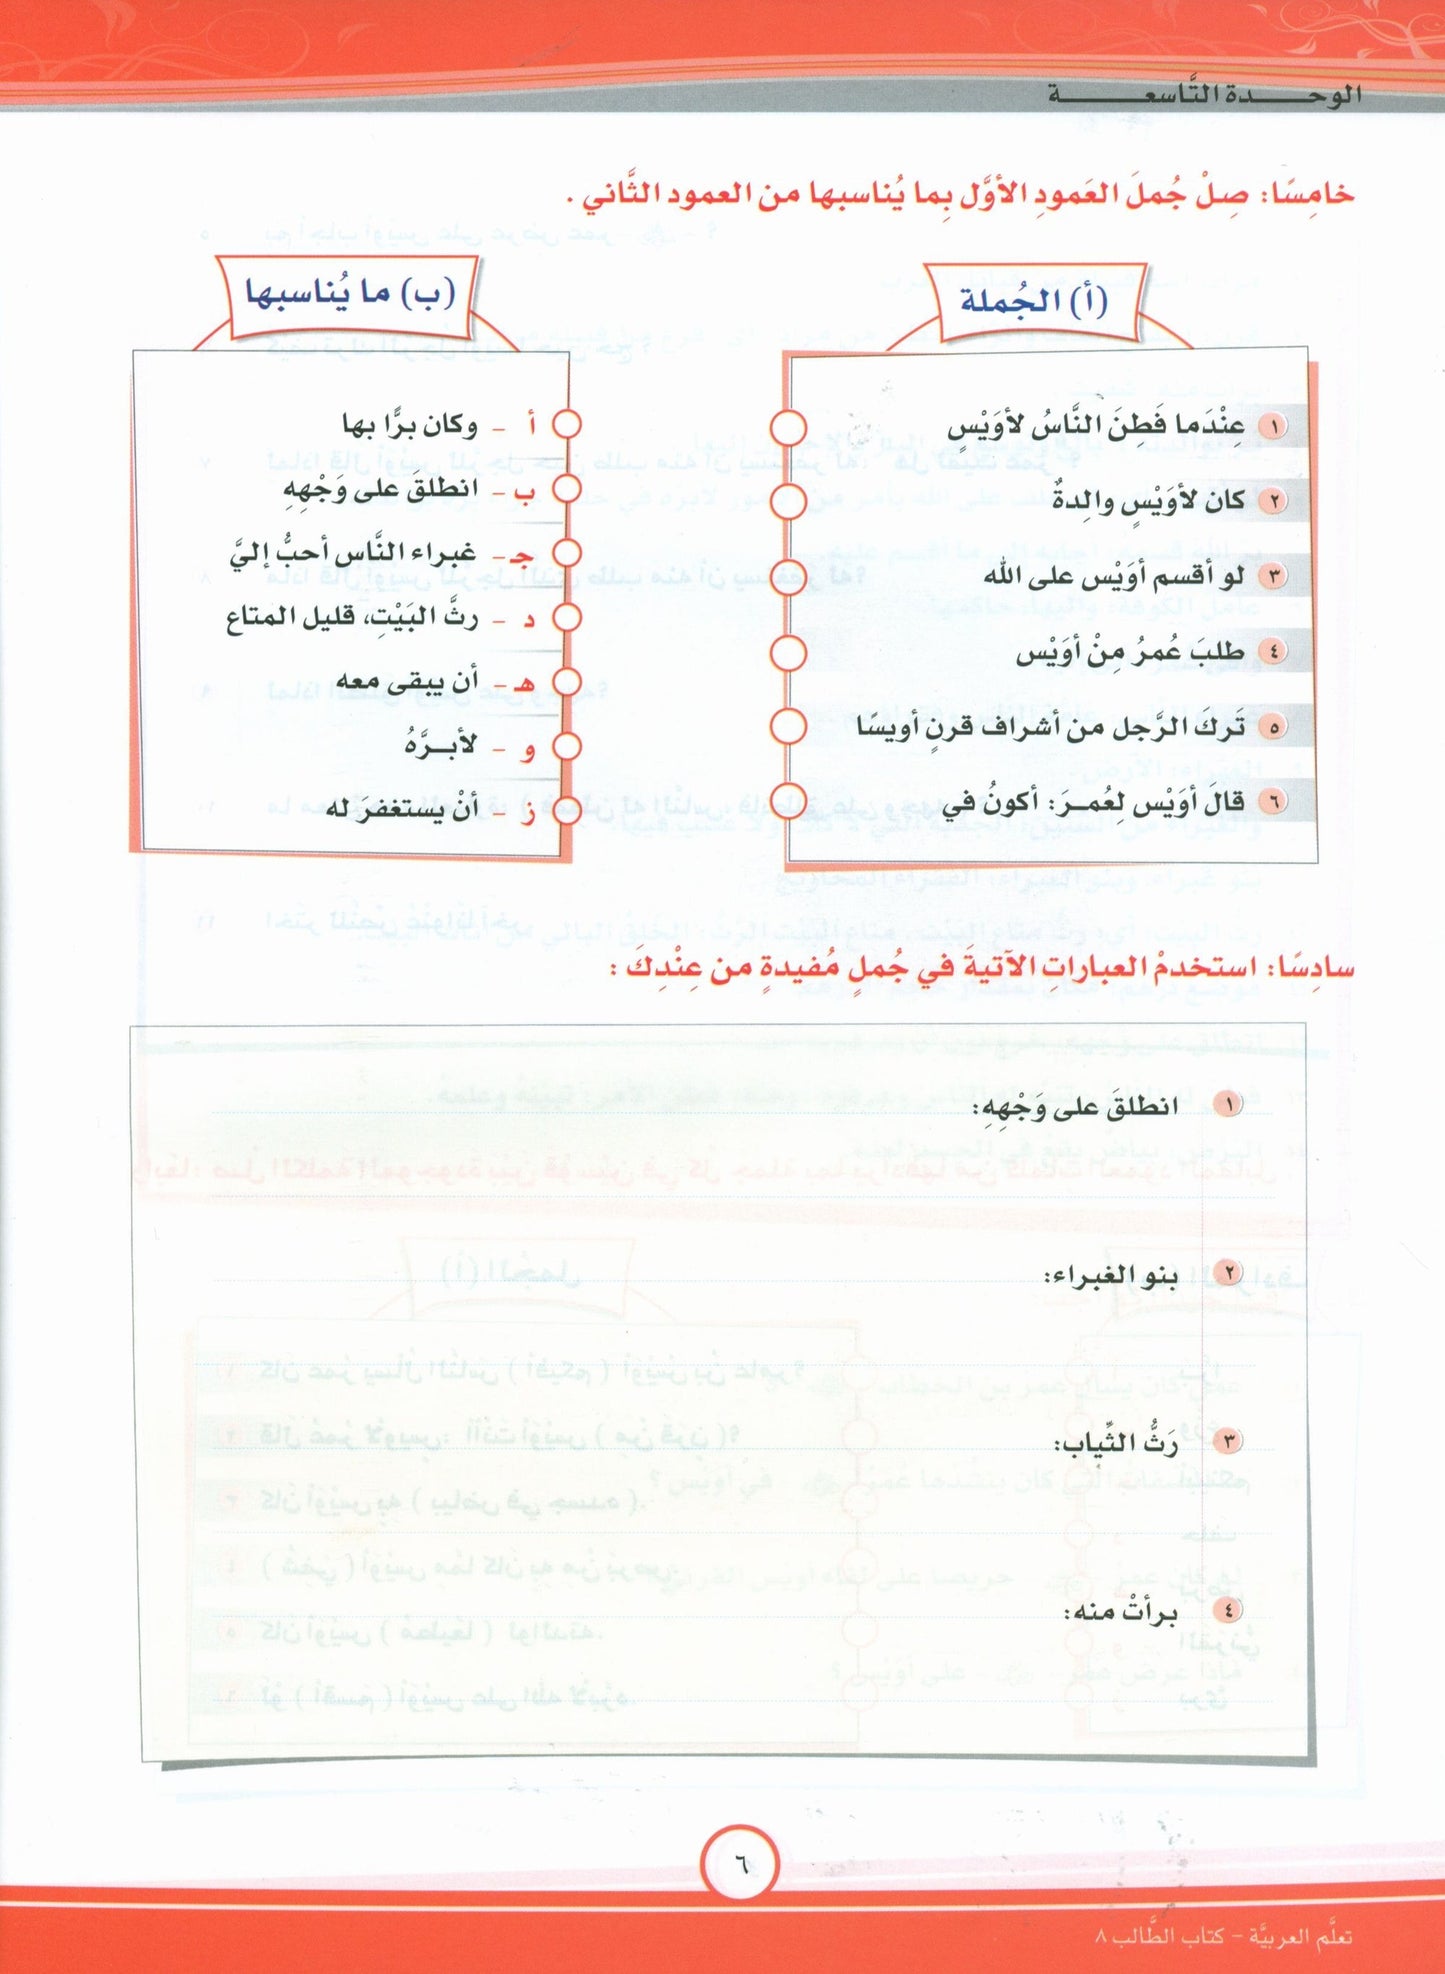 الوحـــدة التَّاسعـــــة
خامِسًا: صِلْ جُملَ العَمودِ الأوَّل بِما يُناسبها من العمود الثَّاني .
(أ) الجُملة
١ عنْدَما فَطنَ النَّاسُ لأوَيْسٍ
٢ كان لأوَيْسٍ والِدةٌ
٣ لو أقسم أوَيْس على الله
٤ طلبَ عُمرُ مِنْ أوَيْس
٥ تَركَ الرَّجل من أشراف قرنٍ أويسًا
٦ قالَ أوَيْس لِعُمـرَ: أكونُ في
(ب) ما يُناسبها
أ - وكان برًّا بها
ب - انطلقَ على وَجْهِهِ
جـ - غبراء النَّاس أحبُّ إليَّ
د - رثَّ البَيْتِ، قليل المتاع
هـ - أن يبقى معه
و - لأبـرَّهُ
ز - أنْ يستغفرَ له
سادِسًا: استخدمْ العباراتِ الآتيةَ في جُملٍ مُفيدةٍ من عِنْدِكَ :
١ انطلقَ على وَجْهِهِ:
٢ بنو الغبراء:
٣ رَثُّ الثِّياب:
٤ برأتْ منه:
٦
تعلَّم العربيَّة - كتاب الطَّالب ٨